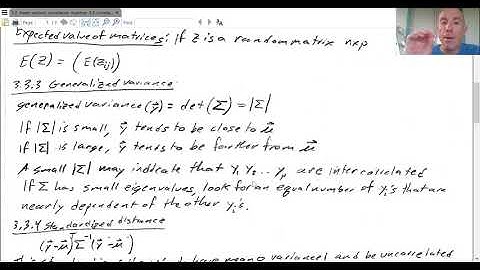 Expected value of matrices: if Z is a random matrix nxp
E(Z) = (E(Zij))
3.3.3 Generalized variance
generalized variance(y⃗) = det(Σ) = |Σ|
If |Σ| is small, y⃗ tends to be close to μ⃗
If |Σ| is large, y⃗ tends to be farther from μ⃗
A small |Σ| may indicate that y₁ y₂ ... yₚ are intercorrelated
If Σ has small eigenvalues, look for an equal number of yᵢ's that are
nearly dependent of the other yᵢ's.
3.3.4 Standardized distance
(y⃗-μ⃗)ᵀΣ⁻¹(y⃗-μ⃗)
have mean variance 1 and be uncorrelated